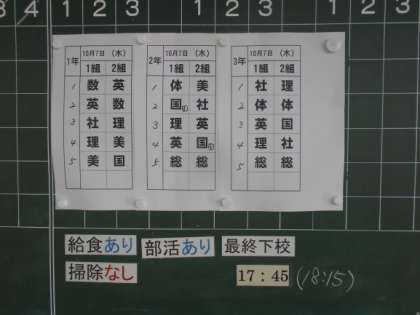 3 4 1 2 3 1 2 3 1 2 3
1年 10月7日 (木) 1組 2組
1 数 英
2 英 数
3 社 理
4 理 美
5 美 国
2年 10月7日 (木) 1組 2組
1 体 美
2 国 社
3 理 英
4 英 国
5 総 総
3年 10月7日 (木) 1組 2組
1 社 理
2 体 体
3 英 国
4 理 社
5 総 総
給食あり 部活あり 最終下校
掃除なし 17:45 (18:15)